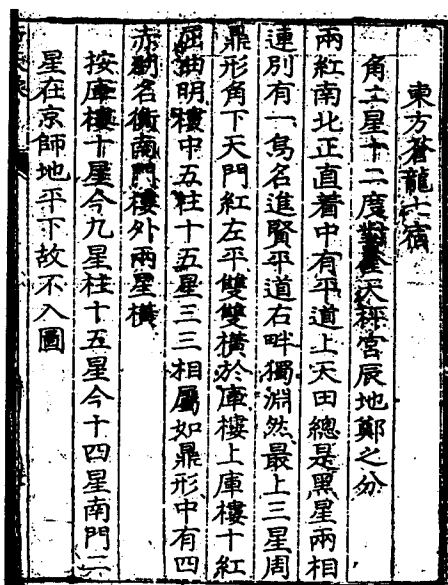 東方蒼龍七宿
角二星十二度對宮天秤宮辰地鄭之分
兩紅南北正直着中有平道上天田總是黑星兩相
連別有一烏名進賢平道右畔獨淵然最上三星周
鼎形角下天門紅左平雙雙橫於庫樓上庫樓十紅
屈曲明樓中五柱十五星三三相屬如鼎形中有四
赤別名衡南門樓外兩星橫
按庫樓十星今九星柱十五星今十四星南門二
星在京師地平下故不入圖